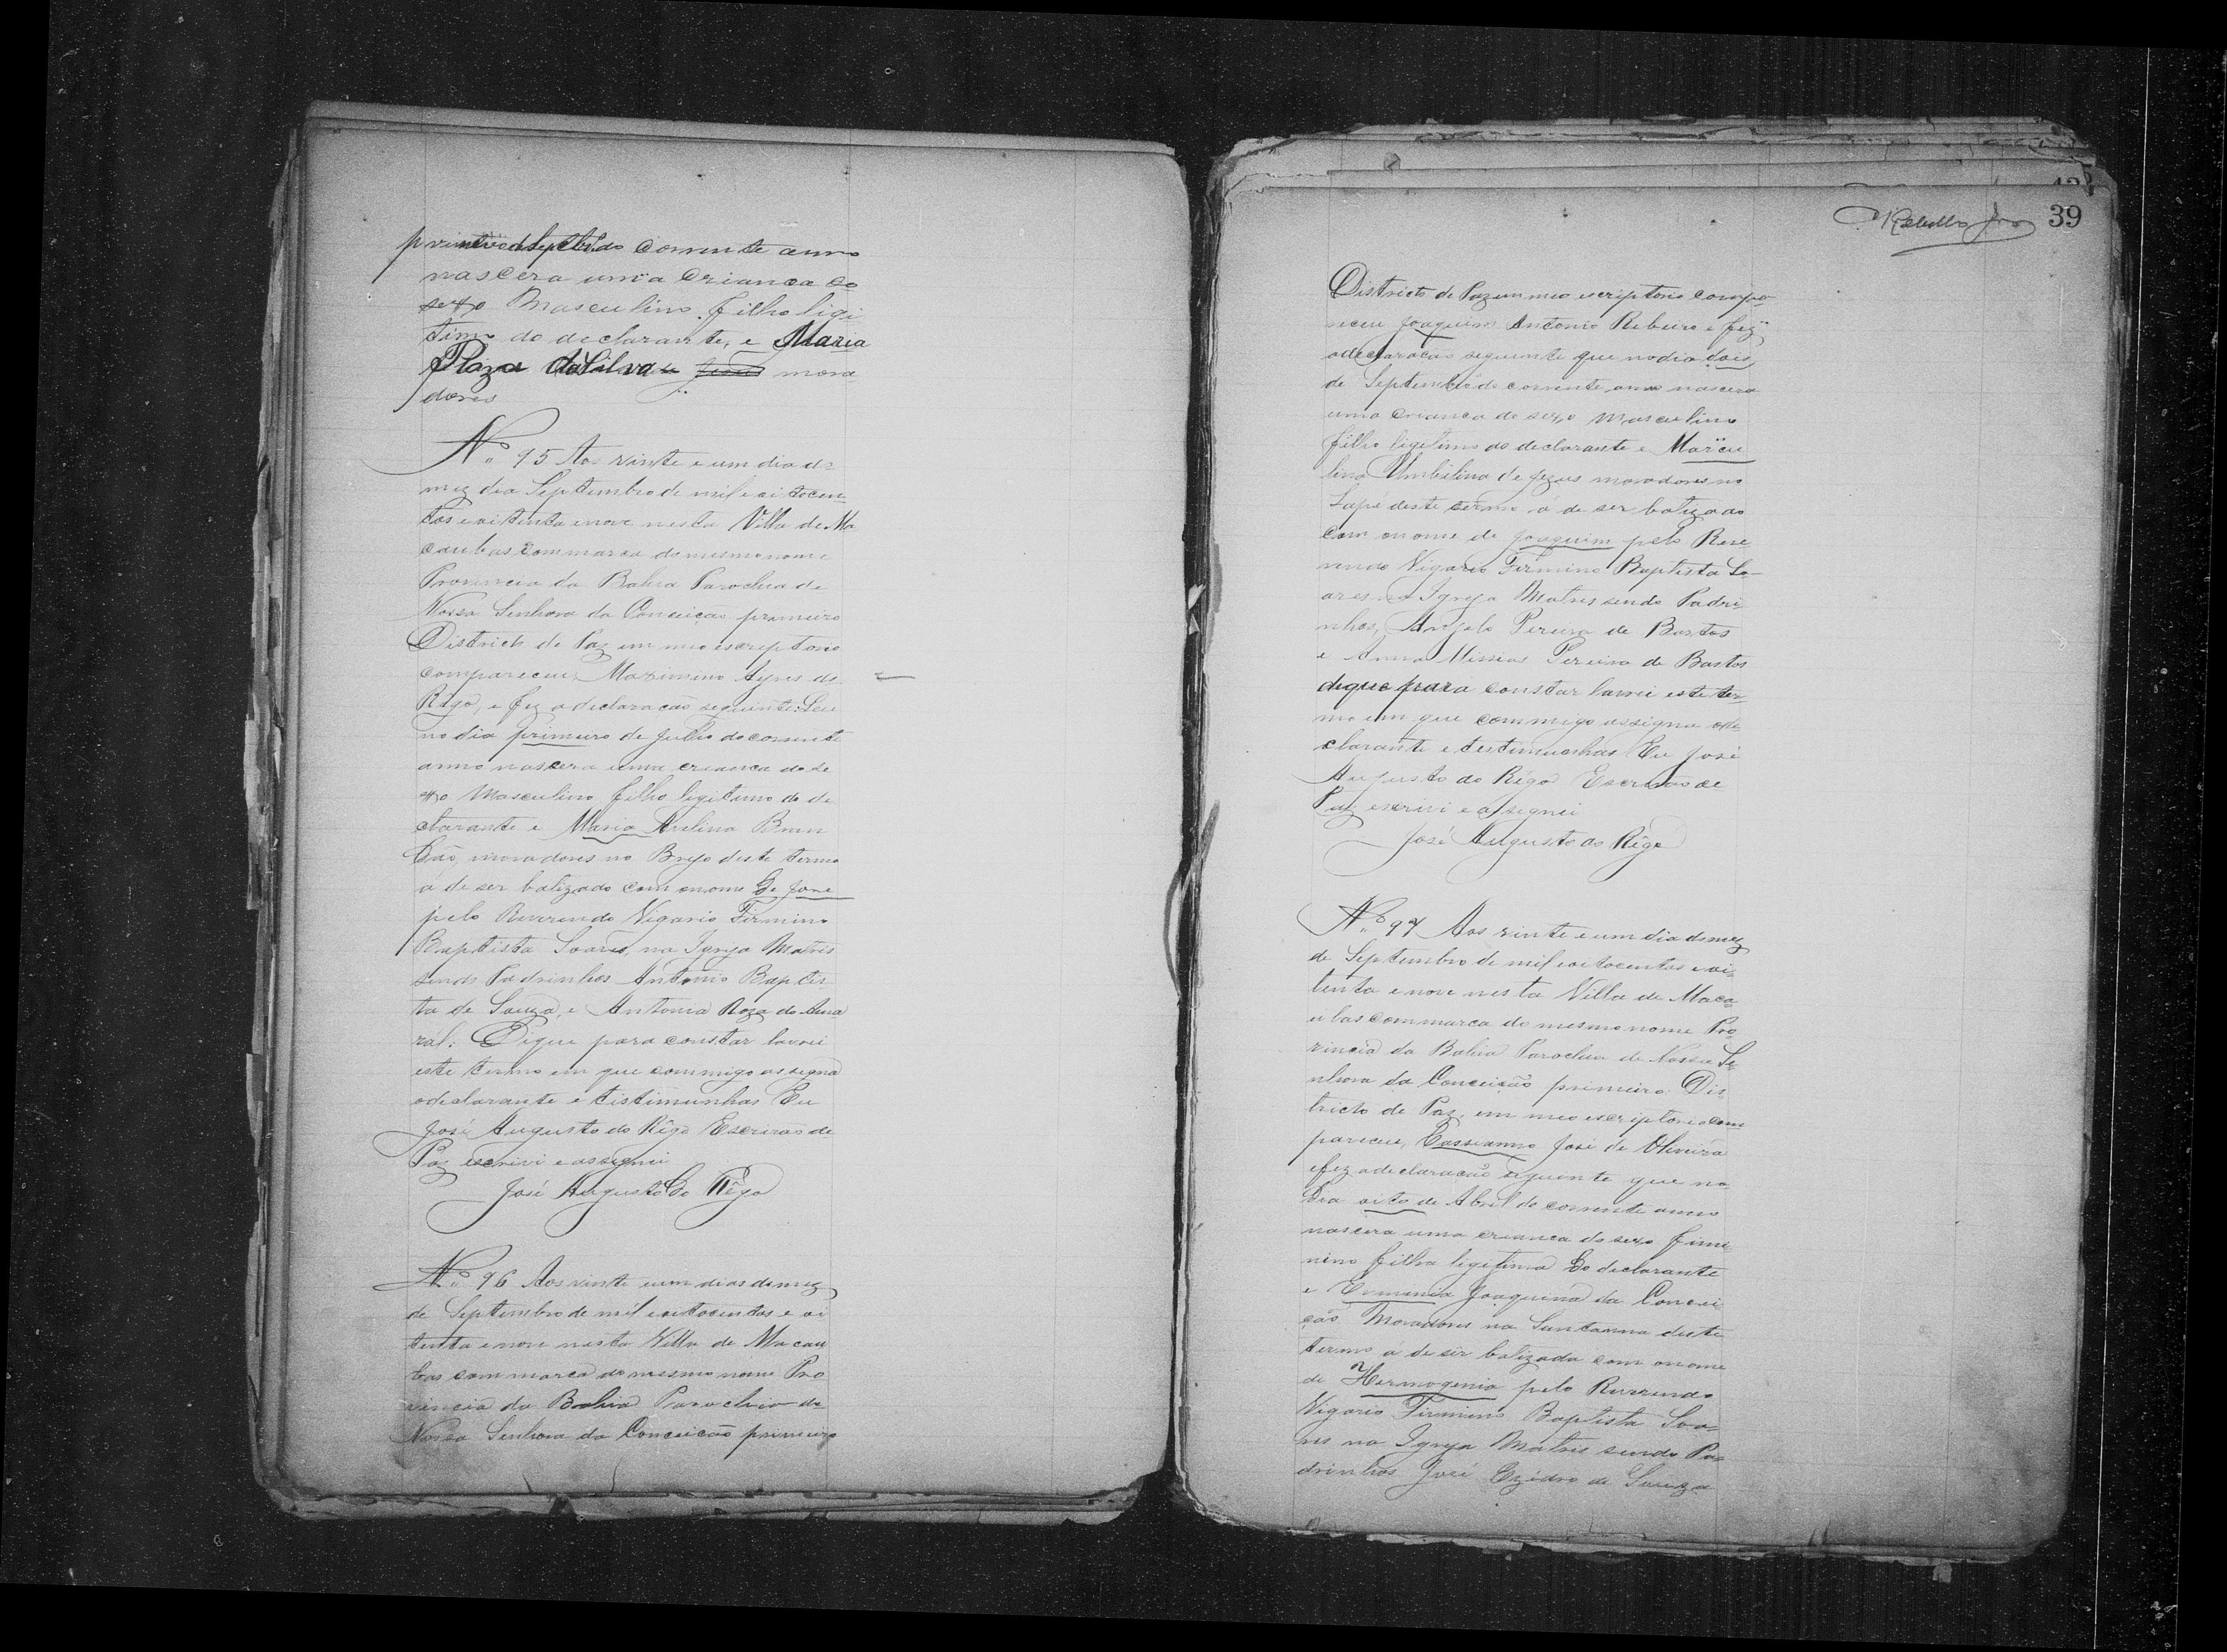 primeiro de Septbro do corrente anno
nascera uma Crianca do
sexo Masculino. filho ligi
timo do declarante, e Maria
Roza da Silva mora
dores
N.º 95 Aos vinte e um dia do
mez dea Septembro de mil e oitocen
tos e oitenta e nove nesta Villa de Ma
caubas commarca do mesmo nome
Provincia da Bahia Parochia de
Nossa Senhora da Conceicão primeiro
Districto de Paz em meo escriptorio
compareceu, Maximino Ayres do
Rêgo, e fez a declaracão seguinte: Que
no dia primeiro de Julho do corrente
anno nascera uma crianca do se
xo Masculino filho ligitimo do de
clarante e Maria Avelina Bran
dão, moradores no Brejo deste termo
a de ser batizado com o nome de José
pelo Reverendo Vigario Firmino
Baptista Soares, na Igreja Matris
sendo Padrinhos Antonio Baptis
ta de Souza, e Antonia Roza do Ama
ral: Dique para constar lavrei
este termo em que commigo assigna
o declarante e tistimunhas Eu
José Augusto do Rêgo Escrivão de
Paz escrivi e assignei
José Augusto do Rêgo
N.º 96 Aos vinte e um dias do mez
de Septembro de mil e oitocentos e oi
tenta e nove nesta Villa de Macau
bas commarca do mesmo nome Pro
vincia da Bahia Parochia de
Nossa Senhora da Conceicão primeiro
39
Districto de Paz em meo escriptorio compa
receu Joaquim Antonio Ribeiro e fez
a declaracão seguinte que no dia dois
de Septembro do corrente anno nascera
uma Crianca do sexo Masculino
filho ligitimo do declarante e Marcu
lina Umbilina de Jezus moradores no
Sapé deste termo á de ser batizado
com o nome de Joaquim pelo Reve
rendo Vigario Firmino Baptista So
ares na Igreja Matris sendo Padri
nhos, Angelo Pereira de Bastos
e Anna Missias Pereira de Bastos
deque para constar lavrei este ter
mo em que commigo assigna o de
clarante e testimunhas Eu José
Augusto do Rêgo Escrivão de
Paz escrivi e assignei
José Augusto do Rêgo
N.º 97 Aos vinte e um dia do mez
de Septembro de mil e oitocentos e oi
tenta e nove nesta Villa de Maca
ubas commarca do mesmo nome Pro
vincia da Bahia Parochia de Nossa Se
nhora da Conceicão primeiro Dis
tricto de Paz, em meo escriptorio com
pareceu, Cassianno José de Oliveira
e fez a declaracão seguinte que no
dia oito de Abril do corrente anno
nascera uma crianca do sexo fimi
nino filha ligitima do declarante
e Joaquina da Concei
cão Moradores na Santanna deste
termo á de ser batizada com o nome
de Hermogenia pelo Reverendo
Vigario Firmino Baptista Soa
res na Igreja Matris sendo Pa
drinhos José Ezidro de Souza